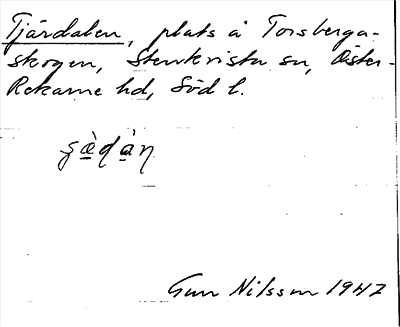 Tjärdalen, plats å Torsberga-
skogen, Stenkvista sn, Öster-
Rekarne hd, Söd l.
Gun Nilsson 1947